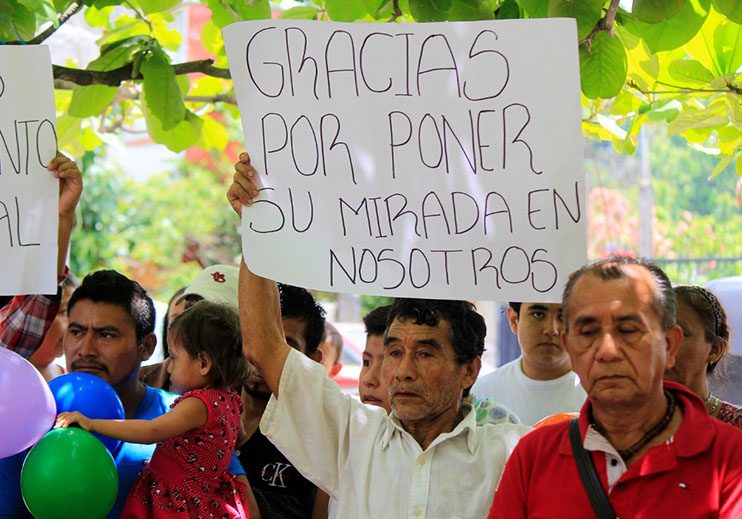 NTO
AL
GRACIAS
POR PONER
SU MIRADA EN
NOSOTROS
CK